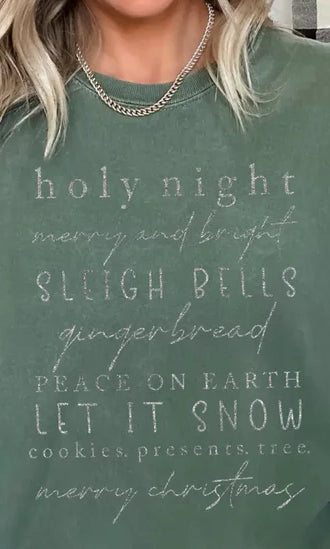 holy night
merry and bright
SLEIGH BELLS
gingerbread
PEACE ON EARTH
LET IT SNOW
cookies. presents. tree.
merry christmas